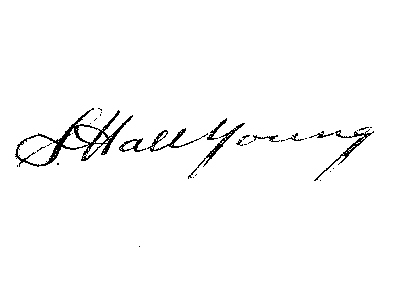 S. Hall Young